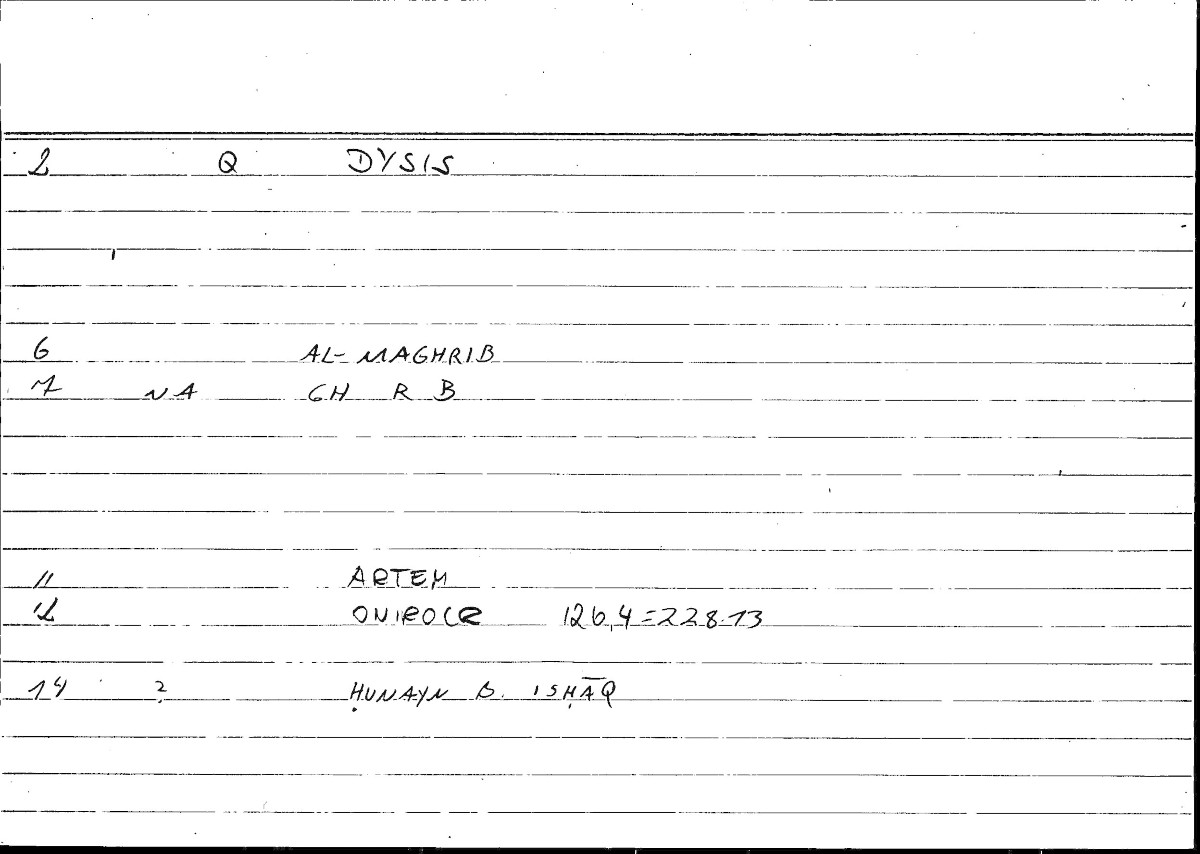 2 Q DYSIS
6 AL-MAGHRIB
7 NA GH R B
11 ARTEM
12 ONIROCR 126,4=228.13
14 ? ḤUNAYN B. ISḤĀQ